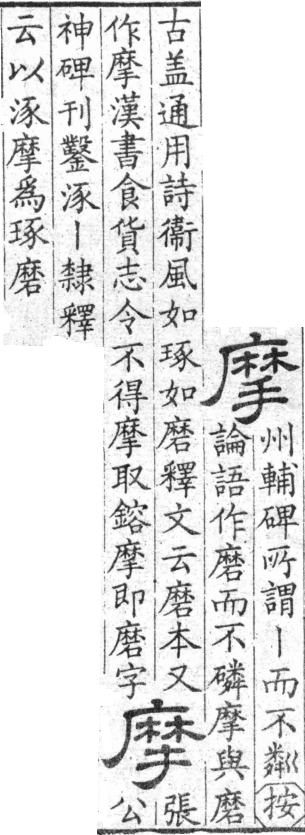 摩
州輔碑所謂丨而不粼按
論語作磨而不磷摩與磨
古盖通用詩衞風如琢如磨釋文云磨本又
作摩漢書食貨志令不得摩取鎔摩即磨字
摩
張
公
神碑刊鑿涿丨隸釋
云以涿摩爲琢磨